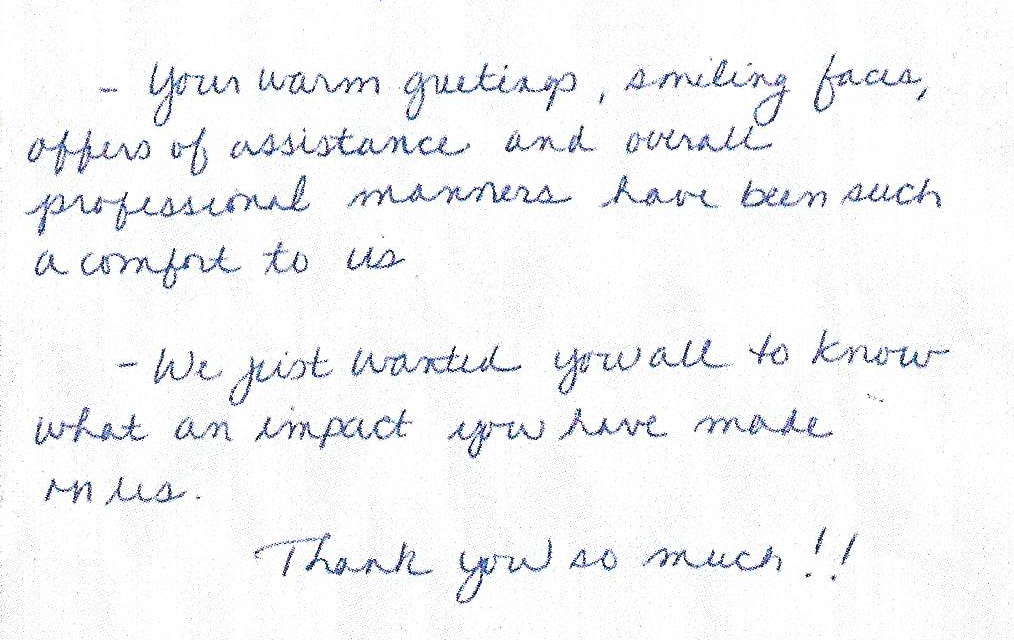 - Your warm greetings, smiling faces,
offers of assistance and overall
professional manners have been such
a comfort to us
- We just wanted you all to know
what an impact you have made
on us.
Thank you so much!!